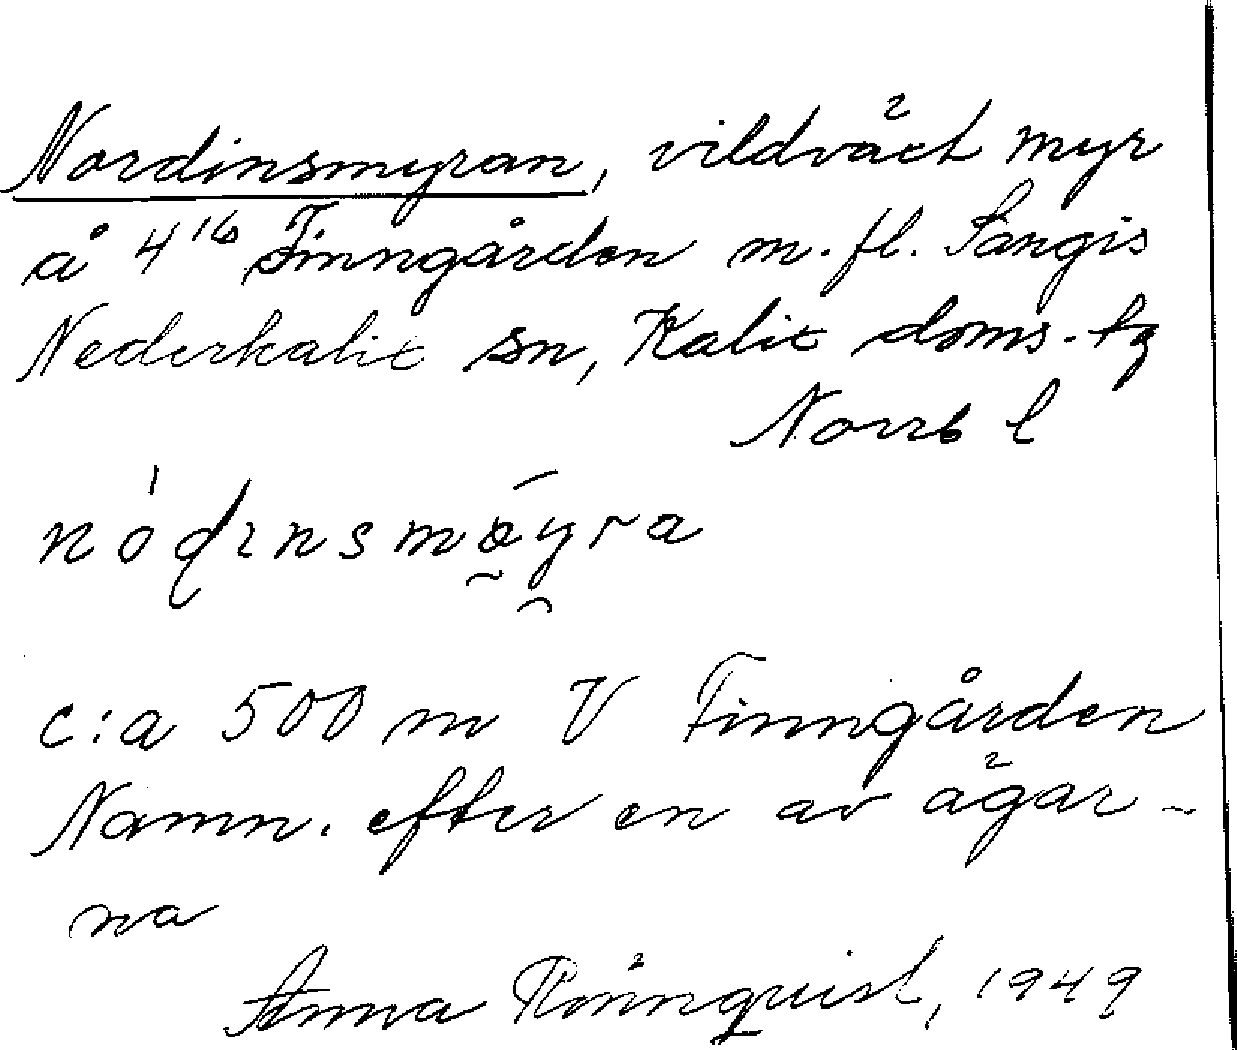 Nordinsmyran, vildväxt myr
å 4¹⁶ Finngården m.fl. Sangis
Nederkalix sn, Kalix doms. tg
Norrb l
c:a 500 m V Finngården
Namn. efter en av ägar-
na
Anna Rönnquist, 1949